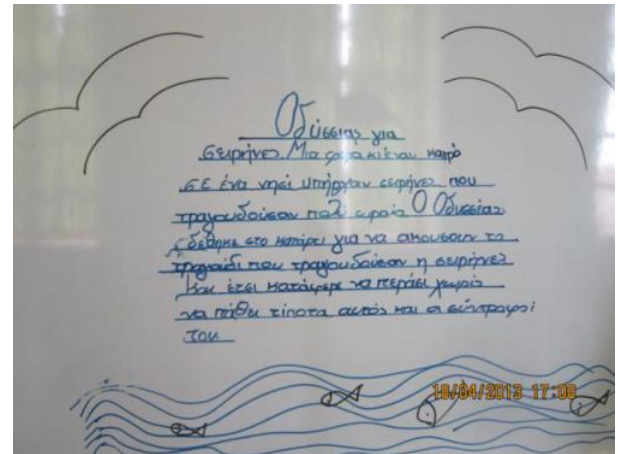 Οδύσσιας για
σειρήνες. Μια φορα κι έναν καιρό
σε ένα νησί υπήρχαν σειρήνες που
τραγουδούσαν πολύ ωραία Ο Οδυσσέας
δεθηκε στο κατάρτι για να ακουσουν το
τραγούδι που τραγουδούσαν η σειρήνες
και έτσι κατάφερε να περάσι χωρίς
να πάθει τίποτα αυτός και οι σύντροφοί
του
18/04/2013 17:08